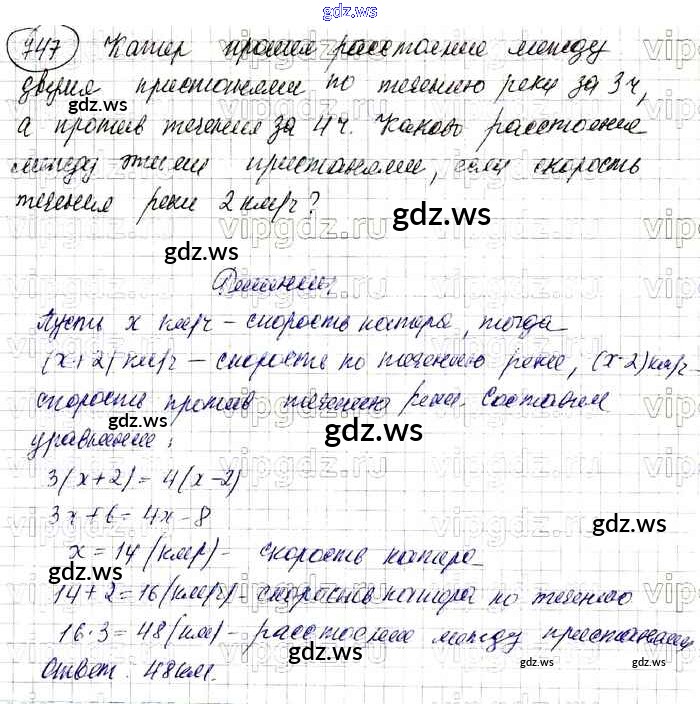 gdz.ws
747 Катер прошел расстояние между
двумя пристанями по течению реки за 3 ч,
а против течения за 4 ч. Каково расстояние
между этими пристанями, если скорость
течения реки 2 км/ч?
gdz.ws
gdz.ws
Решение.
Пусть x км/ч – скорость катера, тогда
(x+2) км/ч – скорость по течению реки, (x-2) км/ч –
скорость против течения реки. Составим
gdz.ws
уравнение:
3(x+2) = 4(x-2)
3x+6 = 4x-8
gdz.ws
x = 14 (км/ч) – скорость катера
gdz.ws
14+2 = 16 (км/ч) – скорость катера по течению
16·3 = 48 (км) – расстояние между пристанями
gdz.ws
gdz.ws
gdz.ws
Ответ: 48 км.